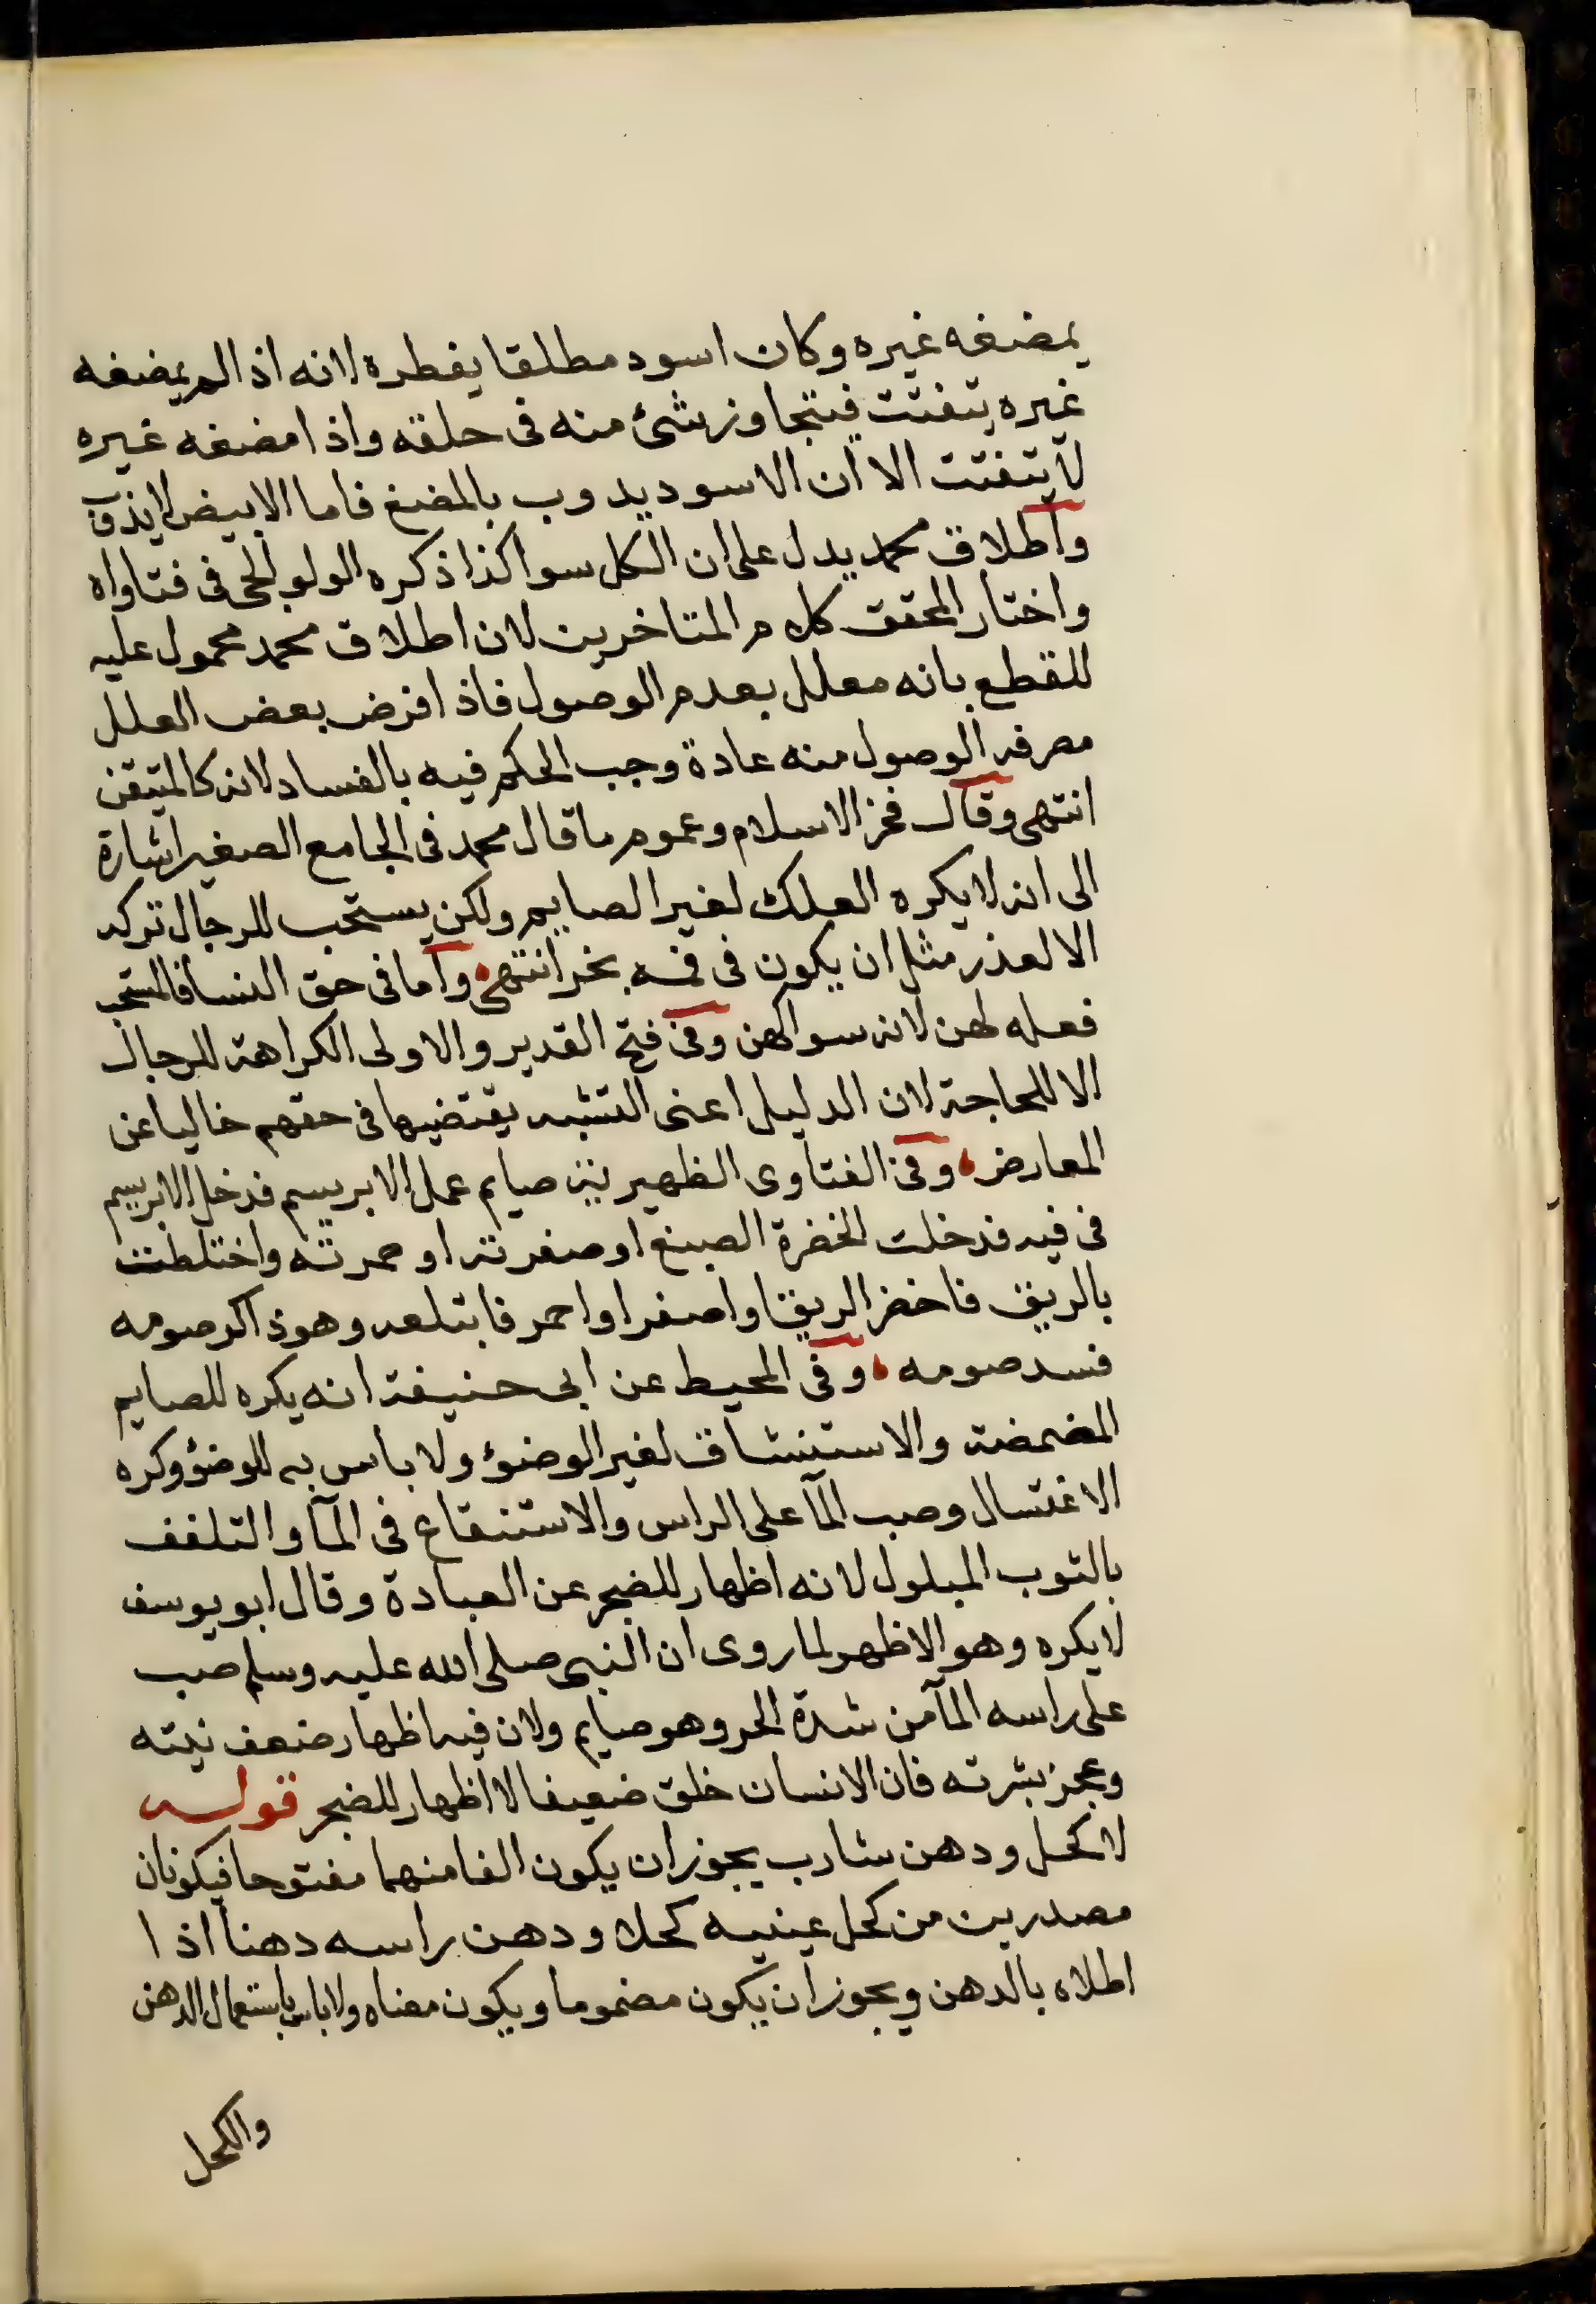 يمضغه غيره وكان اسود مطلقا يفطره لانه اذا لم يمضغه
غيره يتفتت فيتجاوز شئ منه فى حلقه واذا مضغه غيره
لا يتفتت الا ان الاسود يدوب بالمضغ فاما الابيض لا يذوب
واطلاق محمد يدل على ان الكل سوا كذا ذكره الولوالجى فى فتاواه
واختار المحقق كلام المتاخرين لان اطلاق محمد محمول عليه
للقطع بانه معلل بعدم الوصول فاذا فرض بعض العلل
معرفه الوصول منه عادة وجب الحكم فيه بالفساد لانه كالمتيقن
انتهى وقال فخر الاسلام وعموم ما قال محمد فى الجامع الصغير اشارة
الى انه لا يكره العلك لغير الصايم ولكن يستحب للرجال تركه
الا لعذر مثل ان يكون فى فمه بخر انتهى واما فى حق النسا فالمستحب
فعله لهن لانه سواكهن وفى فتح القدير والاولى الكراهة للرجال
الا للحاجة لان الدليل اعنى التشبه يقتضيها فى حقهم خاليا عن
المعارض وفى الفتاوى الظهيرية صايم عمل الابريسم فدخل الابريسم
فى فيه فدخلت الخضرة الصبغ او صفرته او حمرته واختلطت
بالريق فاخضر الريق او اصفر او احمر فابتلعه وهو ذاكر صومه
فسد صومه وفى المحيط عن ابى حنيفة انه يكره للصايم
المضمضة والاستنشاق لغير الوضوء ولا باس به للوضؤ وكره
الاغتسال وصب المآ على الراس والاستنقاع فى المآ والتلفف
بالثوب المبلول لانه اظهار للضجر عن العبادة وقال ابو يوسف
لا يكره وهو الاظهر لما روى ان النبى صلى الله عليه وسلم صب
على راسه المآ من شدة الحر وهو صايم ولان فيه اظهار ضعف نيته
وعجز بشرته فان الانسان خلق ضعيفا لا اظهار للضجر قوله
لا كحل ودهن شارب يجوز ان يكون الفا منهما مفتوحا فيكونان
مصدرين من كحل عينيه كحلا ودهن راسه دهنا اذا
اطلاه بالدهن ويجوز ان يكون مضموما ويكون مضناه ولا باس باستعمال الدهن
والكحل